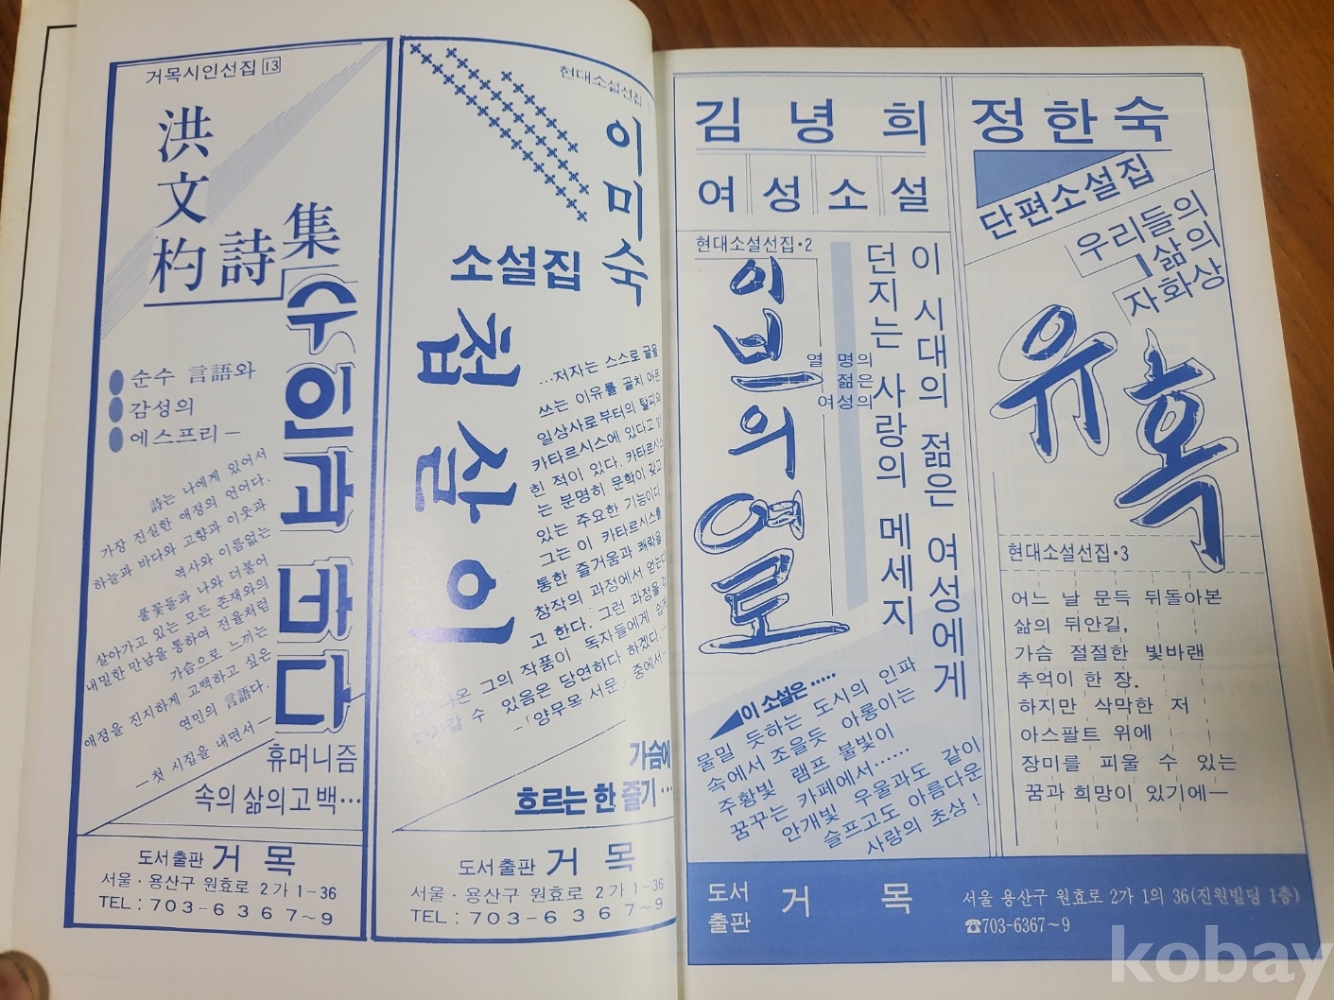 거목시인선집 13
洪文杓 詩集
수인과 바다
순수 言語와
감성의
에스프리—
詩는 나에게 있어서
가장 진실한 애정의 언어다.
하늘과 바다와 고향과 이웃과
역사와 이름없는
풀꽃들과 나와 더불어
살아가고 있는 모든 존재와의
내밀한 만남을 통하여 전율처럼
가슴으로 느끼는
애정을 진지하게 고백하고 싶은
연민의 言語다.
—첫 시집을 내면서—
휴머니즘
속의 삶의고백…
도서출판 거목
서울·용산구 원효로 2가 1-36
TEL : 703-6367~9
현대소설선집
이미숙
소설집
첩살이
…저자는 스스로 글을
쓰는 이유를 골치 아픈
일상사로부터의 탈피와
카타르시스에 있다고
힌 적이 있다. 카타르시스
는 분명히 문학이 갖고
있는 주요한 기능이다.
그는 이 카타르시스를
통한 즐거움과 쾌락을
창작의 과정에서 얻는다
고 한다. 그런 과정을
나온 그의 작품이 독자들에게 쉽게
수 있음은 당연하다 하겠다.…
—「양무목 서문」중에서—
가슴에
흐르는 한 줄기…
도서출판 거목
서울·용산구 원효로 2가 1-36
TEL : 703-6367~9
김녕희
여성소설
현대소설선집·2
이브의 영토
열 명의
젊은
여성의
이 시대의 젊은 여성에게
던지는 사랑의 메세지
이 소설은……
물밀 듯하는 도시의 인파
속에서 조을듯 아롱이는
주황빛 램프 불빛이
꿈꾸는 카페에서……
안개빛 우울과도 같이
슬프고도 아름다운
사랑의 초상!
정한숙
단편소설집
우리들의
삶의
자화상
유혹
현대소설선집·3
어느 날 문득 뒤돌아본
삶의 뒤안길,
가슴 절절한 빛바랜
추억이 한 장.
하지만 삭막한 저
아스팔트 위에
장미를 피울 수 있는
꿈과 희망이 있기에—
도서출판 거목
서울 용산구 원효로 2가 1의 36(진원빌딩 1층)
☎703-6367~9
kobay